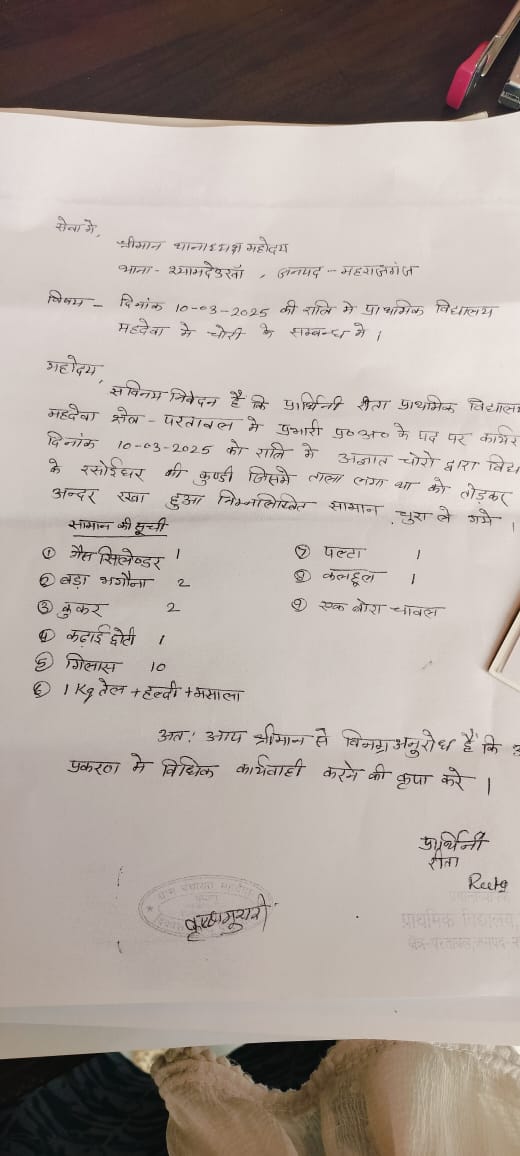 सेवा मे,
श्रीमान थानाध्यक्ष महोदय
थाना- श्यामदेउरवाँ , जनपद - महराजगंज
विषय - दिनांक 10-03-2025 की रात्रि मे प्राथमिक विद्यालय
महदेवा मे चोरी के सम्बन्ध मे ।
महोदय,
सविनय निवेदन है कि प्रार्थिनी रीता प्राथमिक विद्यालय
महदेवा क्षेत्र - परतावल मे प्रभारी प्र०अ० के पद पर कार्यर
दिनांक 10-03-2025 को रात्रि मे अज्ञात चोरो द्वारा विद्य
के रसोईघर की कुण्डी जिसमे ताला लगा था को तोड़कर
अन्दर रखा हुआ निम्नलिखित सामान चुरा ले गये ।
सामान की सूची
① गैस सिलेण्डर 1
② बड़ा भगौना 2
③ कुकर 2
④ कढ़ाई छोटी 1
⑤ गिलास 10
⑥ 1 Kg तेल + हल्दी + मसाला
⑦ पल्टा 1
⑧ कलछुल 1
⑨ एक बोरा चावल
अतः आप श्रीमान से विनम्र अनुरोध है कि
प्रकरण मे विधिक कार्यवाही करने की कृपा करे ।
प्रार्थिनी
रीता
Reeta
प्राथमिक विद्यालय,
क्षेत्र-परतावल, जनपद-
ग्राम पंचायत महदेवा
कृष्णमुरारी